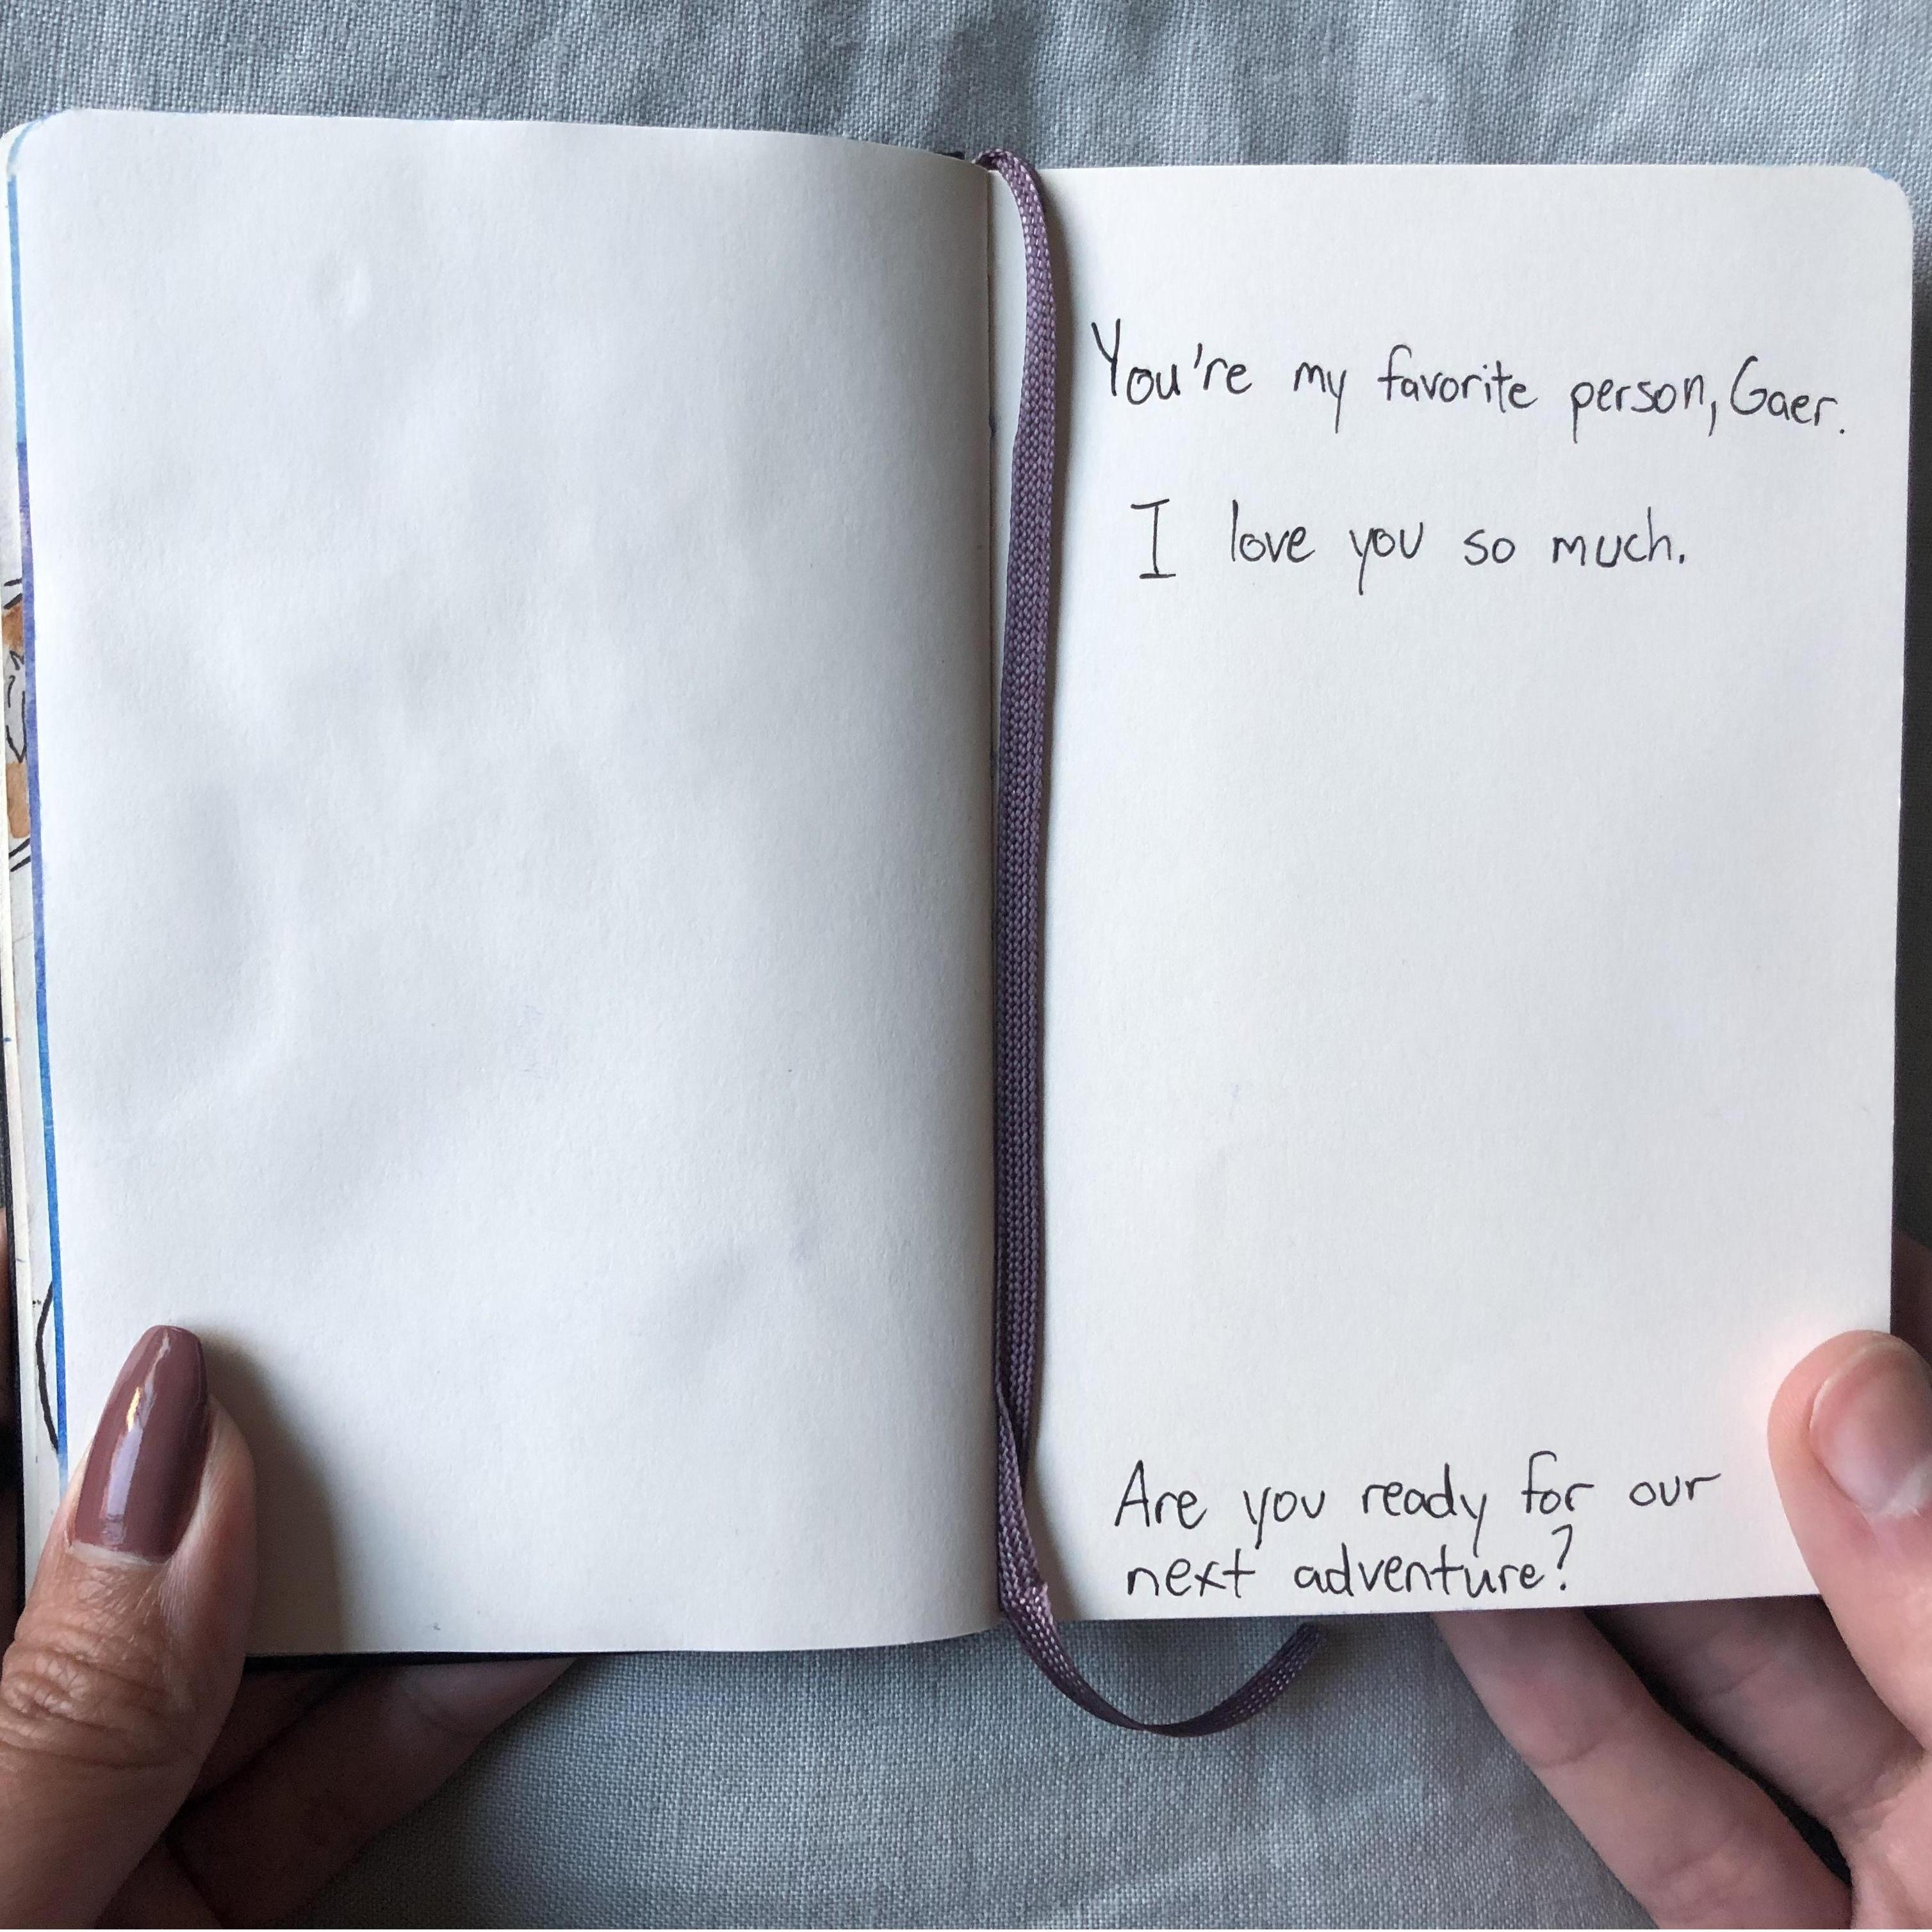 You're my favorite person, Gaer.
I love you so much.
Are you ready for our
next adventure?